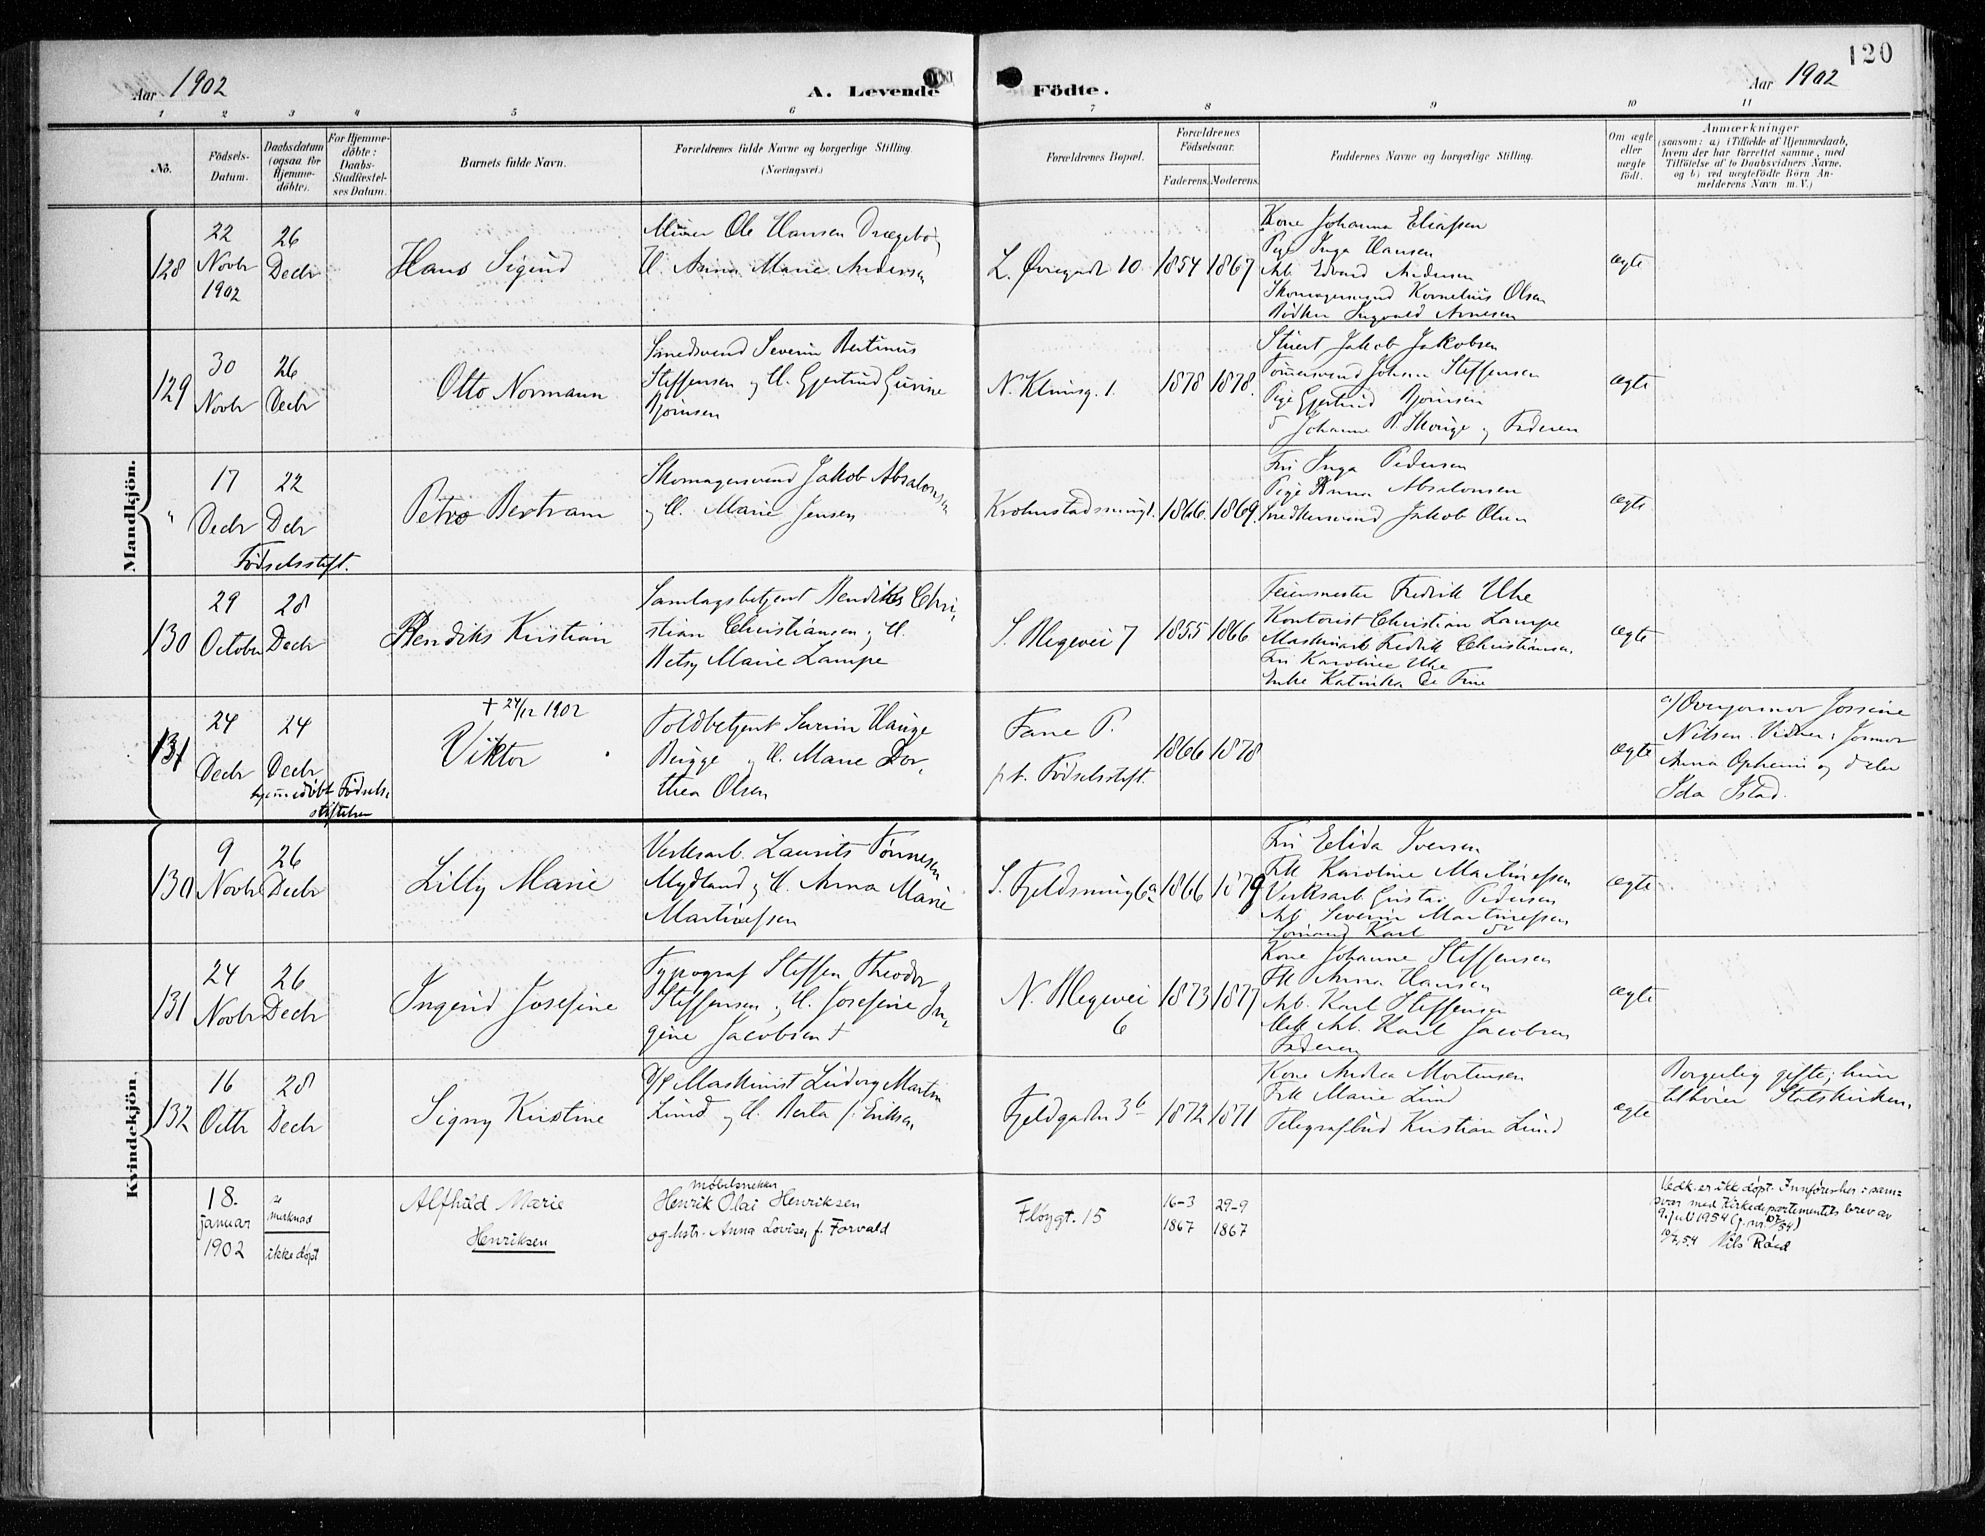 Aar 1902
A. Levende Födte.
Aar 1902
120
1 2 3 4 5 6 7 8 9 10 11
No.
Födsels-
Datum.
Daabsdatum
(ogsaa for
Hjemme-
döbte).
For Hjemme-
döbte:
Daabs-
Stadfæstel-
ses Datum.
Barnets fulde Navn.
Forældrenes fulde Navne og borgerlige Stilling.
(Næringsvei.)
Forældrenes Bopæl.
Forældrenes
Födselsaar.
Faderens. Moderens.
Faddernes Navne og borgerlige Stilling.
Om ægte
eller
uægte
födt.
Anmærkninger
(saasom: a) i Tilfælde af Hjemmedaab,
hvem der har forrettet samme, med
Tilföielse af to Daabsvidners Navne,
og b) ved uegtefödte Börn An-
melderens Navn m. V.)
Mandkjön.
128
22
Novbr
1902
26
Decbr
Hans Sigurd
Murer Ole Hansen Drægebø
H. Anna Marie Andersen
L. Øvregade 10
1854 1867
Kone Johanna Eliassen
Pige Inga Hansen
Arb. Edvard Andersen
Skomagersvend Kornelius Olsen
Bødker Ingvald Arnesen
ægte
129
30
Novbr
26
Decbr
Otto Normann
Smedsvend Severin Bertinus
Steffensen og H. Gjertrud Gurine
Bjørnsen
N. Klausg. 1.
1878 1878.
Stuert Jakob Jakobsen
Tømmersvend Johan Steffensen
Pige Gjertrud Bjørnsen
Johanne B. Skouge og Faderen
ægte
"
17
Decbr
22
Dcbr
Fødselsstift.
Petro Bertram
Skomagersvend Jakob Absalonsen
og H. Marie Jensen
Krohnstadsmug 1.
1866. 1869.
Fru Inga Pedersen
Pige Anna Absalonsen
Snedkersvend Jakob Olsen
ægte
130
29
October
28
Decbr
Bendiks Kristian
Samlagsbetjent Bendiks Chri-
stian Christiansen og H.
Betsy Marie Lampe
S. Blegevei 7
1855 1866
Feiermester Fredrik Uhe
Kontorist Christian Lampe
Maskinarb Fredrik Christiansen.
Fru Karoline Uhe
Enke Katinka De Fine
ægte
131
24
Decbr
24
Decbr
hjemmedøbt Fødsels-
stiftelsen
† 24/12 1902
Viktor
Toldbetjent Severin Hauge
Brügge og H. Marie Dor-
thea Olsen
Fane P.
p.t. Fødselsstift.
1866 1878
ægte
a/ Overjormor Jossine
Nilsen. Vidner: Jormor
Anna Opheim og d elev
Ida Istad.
Kvindekjön.
130
9
Novbr
26
Decbr
Lilly Marie
Verksarb. Laurits Tønnesen
Mydland og H. Anna Marie
Martinessen
S. Fjeldsmug 6a
1866 1879
Fru Elida Iversen
Frk Karoline Martinessen
Verksarb Gustav Pedersen
Arb. Severin Martinessen
Sømand Karl do
ægte
131
24
Novbr
26
Decbr
Ingerid Josefine
Typograf Steffen Theodor
Steffensen og H. Josefine In-
gine Jacobsen
N. Blegevei
6
1873 1877
Kone Johanne Steffensen
Frk Anna Hansen
Arb. Karl Steffensen
Arb. Karl Jacobsen
Faderen
ægte
132
16
Octbr
28
Decbr
Signy Kirstine
Maskinist Ludvig Martin
Lund og H. Berta f. Eriksen
Fjeldgaden 3b
1872 1871
Kone Andrea Mortensen
Frk Marie Lund
Telegrafbud Kristian Lund
ægte
Borgerlig gifte; hun
tilhører Statskirken.
18.
januar
1902
se
merknad
ikke døpt
Alfhild Marie
Henriksen
møbelsnekker
Henrik Olai Henriksen
og hstr. Anna Lovise, f. Forvald
Fløygt. 15
16-3
1867
29-9
1867
Vedk. er ikke døpt. Innføres her i sam-
svar med Kirkedepartementets brev av
9. juli 1954 (j. nr. 107/54)
10/7, 54 Nils Røed